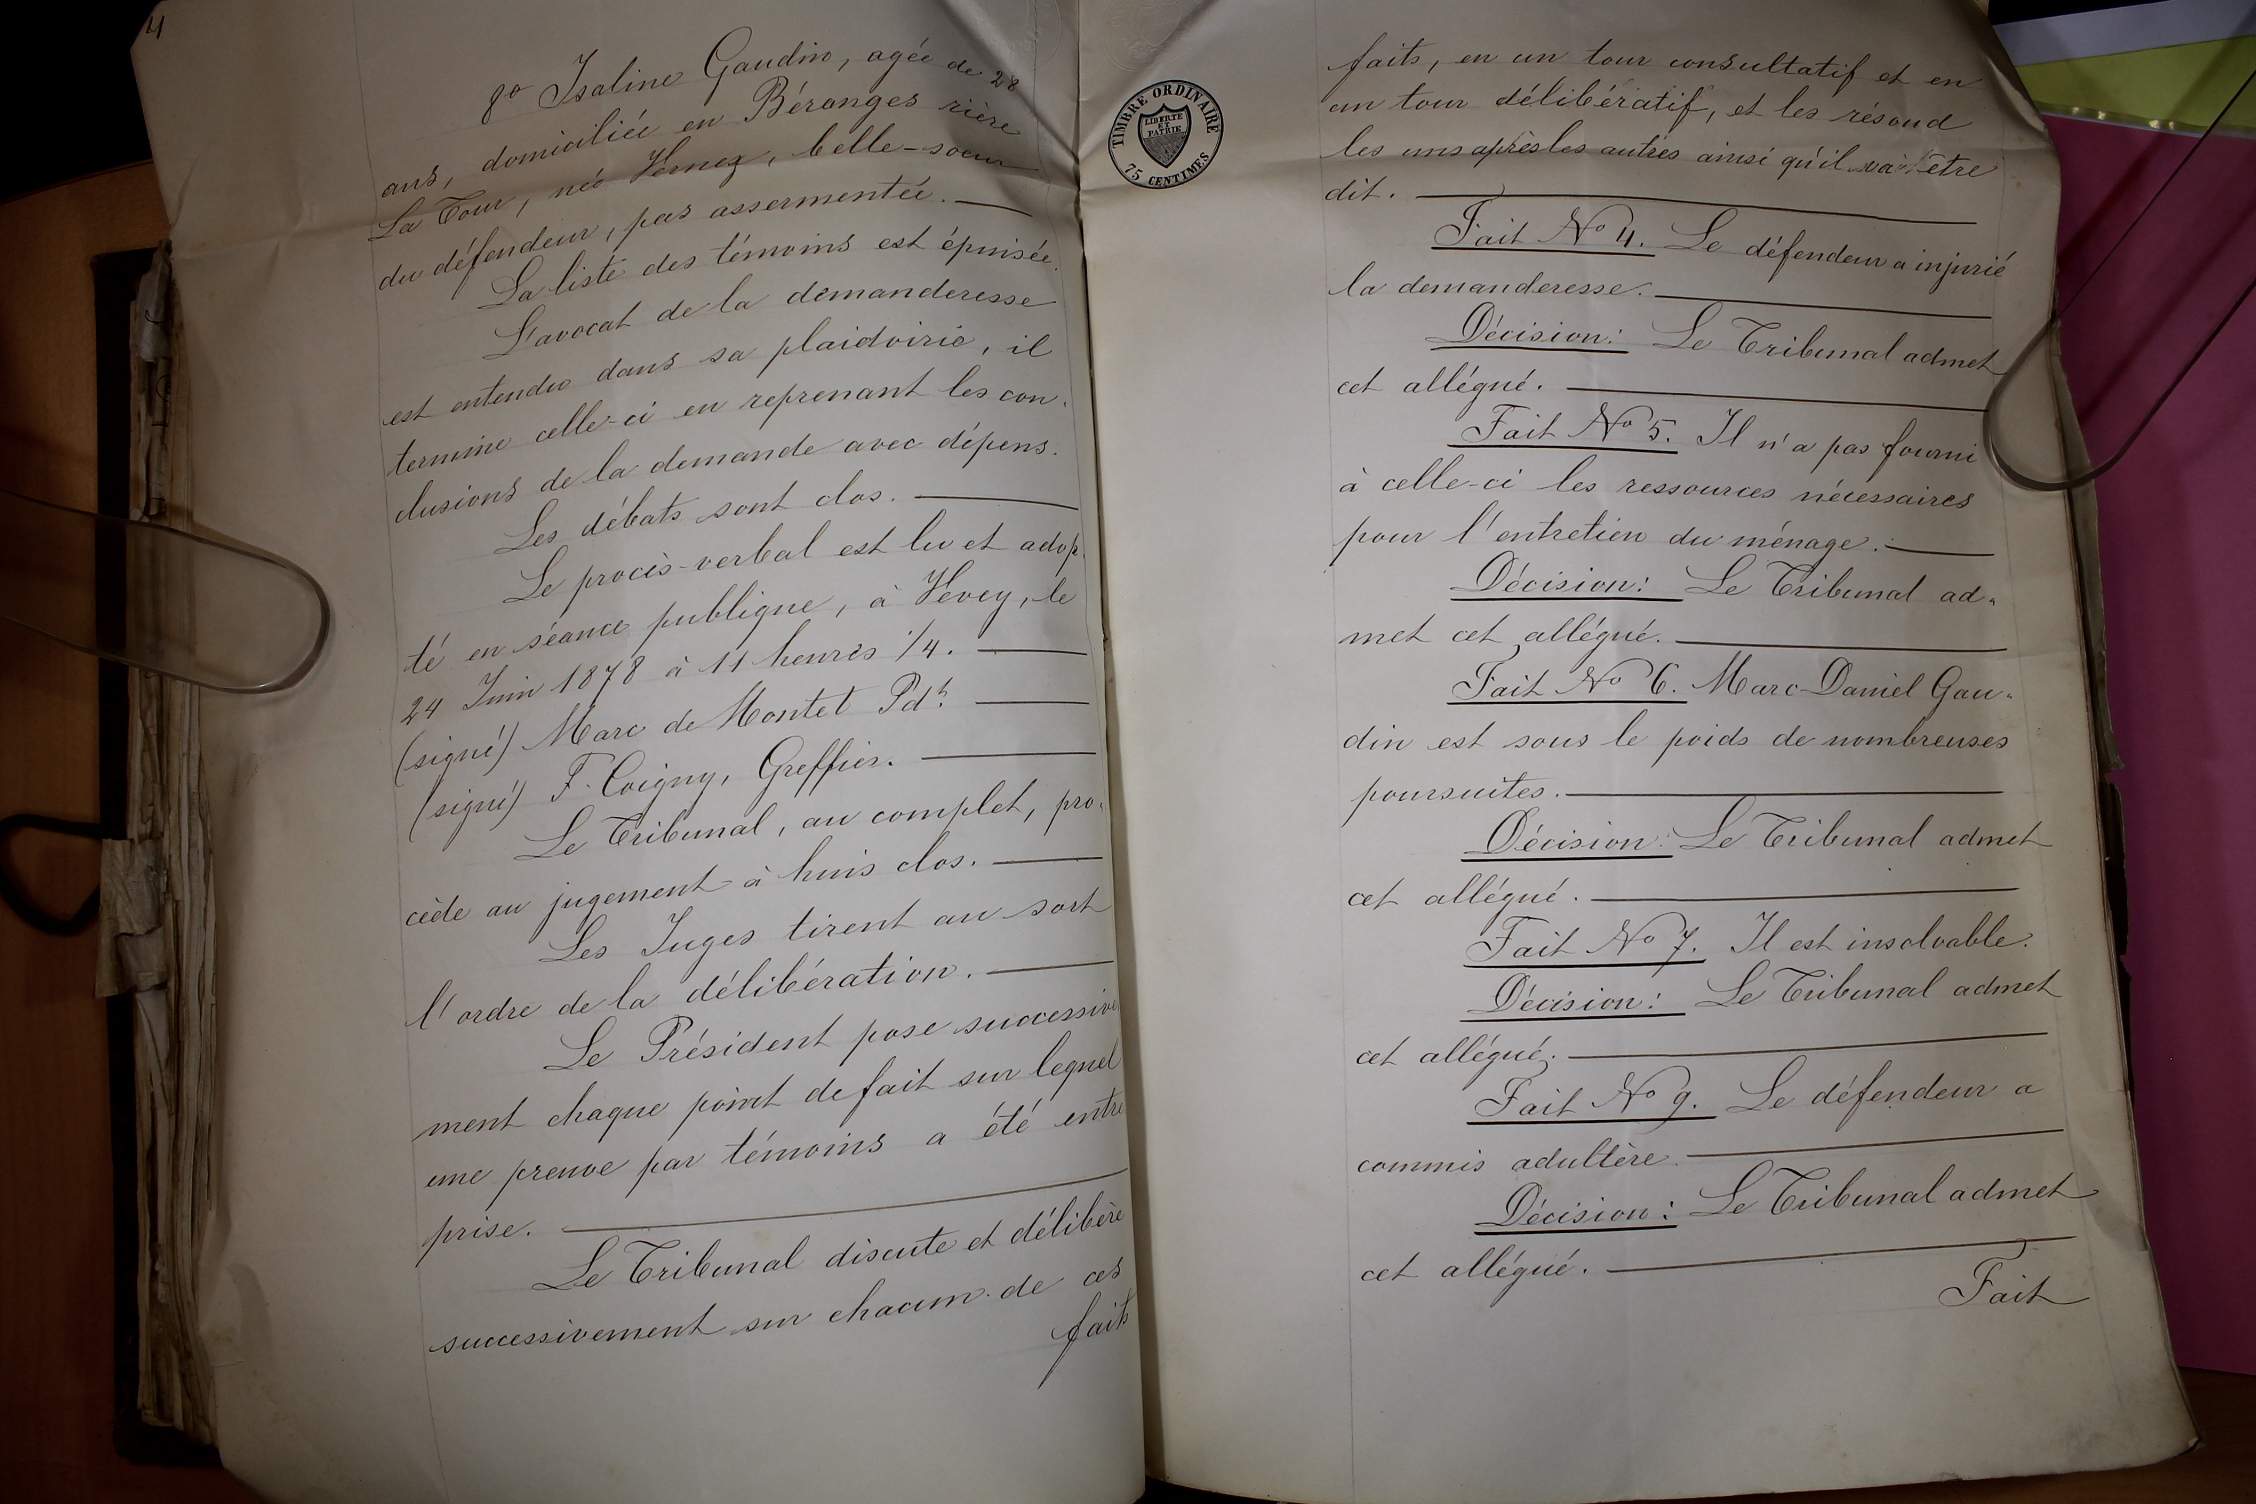 4
8º Isaline Gaudin, agée de 28
ans, domiciliée en Béranges rière
La Tour, née Vernez, belle-soeur
du défendeur, pas assermentée.
La liste des témoins est épuisée.
L'avocat de la demanderesse
est entendu dans sa plaidoirie, il
termine celle-ci en reprenant les con-
clusions de la demande avec dépens.
Les débats sont clos.
Le procès-verbal est lu et adop-
té en séance publique, à Vevey, le
24 Juin 1878 à 11 heures 1/4.
(signé) Marc de Montet Pdt
(signé) F. Coigny, Greffier.
Le Tribunal, au complet, pro-
cède au jugement à huis clos.
Les Juges tirent au sort
l'ordre de la délibération.
Le Président pose successive
ment chaque point de fait sur lequel
une preuve par témoins a été entre
prise.
Le Tribunal discute et délibère
successivement sur chacun de ces
faits
TIMBRE ORDINAIRE
LIBERTE
ET
PATRIE
75 CENTIMES
faits, en un tour consultatif et en
un tour délibératif, et les résoud
les uns après les autres ainsi qu'il va être
dit.
Fait Nº 4. Le défendeur a injurié
la demanderesse.
Décision: Le Tribunal admet
cet allégué.
Fait Nº 5. Il n'a pas fourni
à celle-ci les ressources nécessaires
pour l'entretien du ménage.
Décision: Le Tribunal ad-
met cet allégué.
Fait Nº 6. Marc-Daniel Gau-
din est sous le poids de nombreuses
poursuites.
Décision: Le Tribunal admet
cet allégué.
Fait Nº 7. Il est insolvable.
Décision: Le Tribunal admet
cet allégué.
Fait Nº 9. Le défendeur a
commis adultère.
Décision: Le Tribunal admet
cet allégué.
Fait